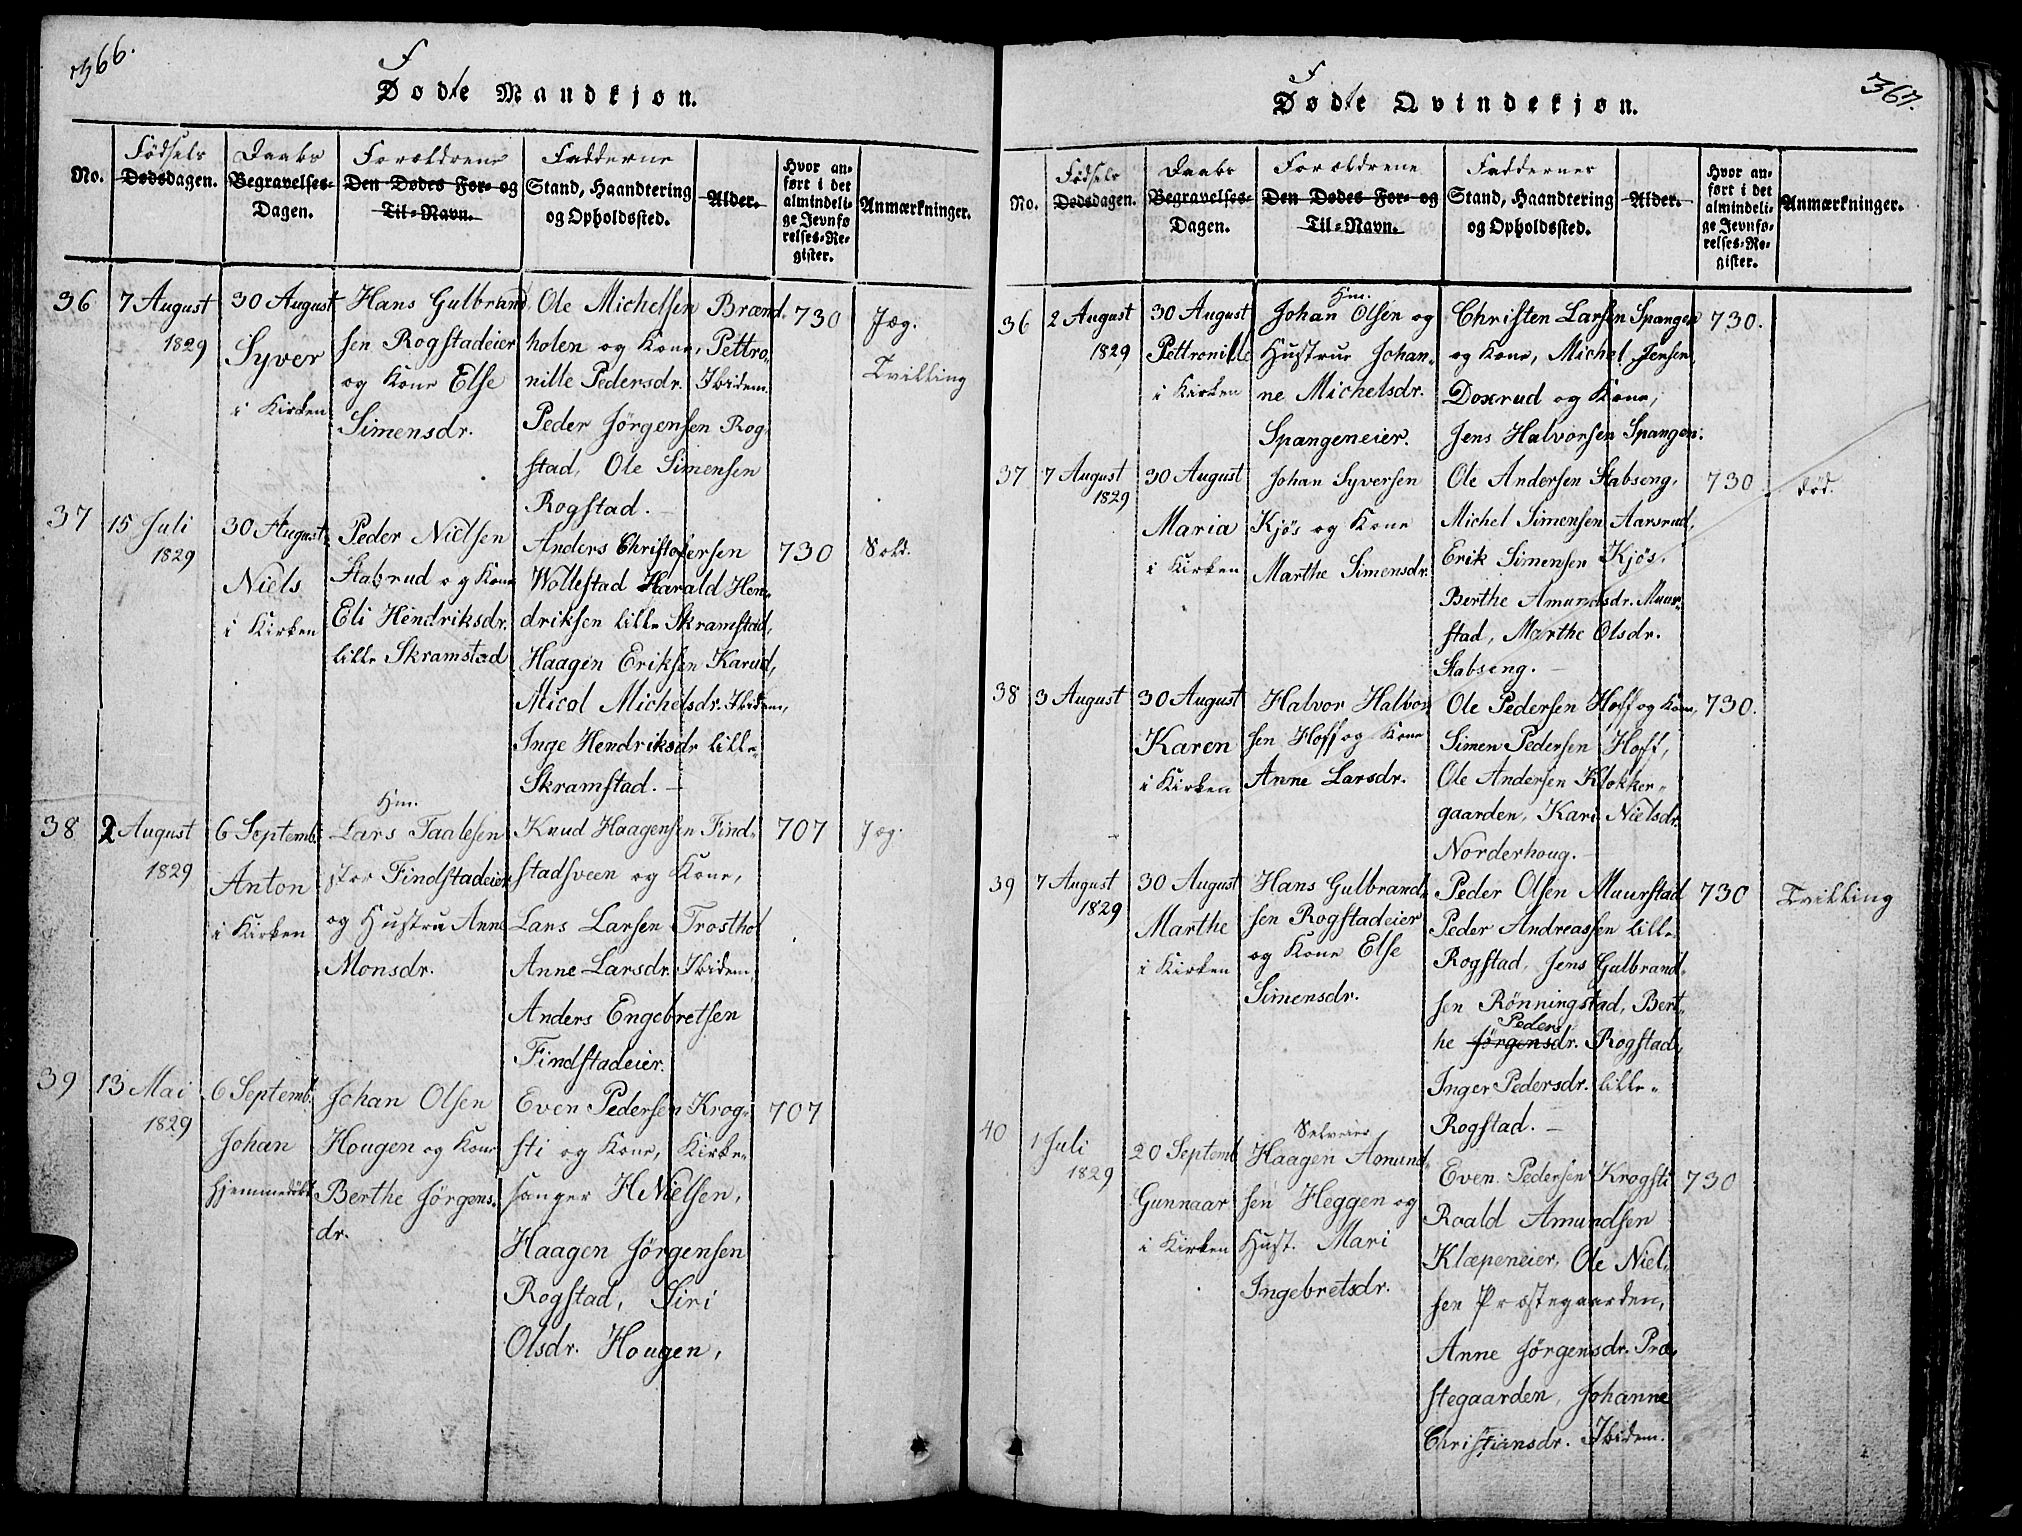 366.
F
Døde Mandkjøn.
No.
Fødsels
Dødsdagen.
Daabs
Begravelses-
Dagen.
Forældrene
Den Dødes For- og
Til-Navn.
Faddernes
Stand, Haandtering
og Opholdssted.
Alder.
Hvor an-
ført i det
almindeli-
ge Jevnfø
relses-Re-
gister.
Anmærkninger.
36
7 August
1829
30 August
Syver
i Kirken
Hans Gulbrand
sen Rogstadeier
og Kone Else
Simensdr.
Ole Michelsen Brænd.
holen og Kone, Pettro-
nille Pedersdr. Ibidem.
Peder Jørgensen Rog-
stad, Ole Simensen
Rogstad.
730
Jæg.
Tvilling
37
15 Juli
1829
30 August
Niels
i Kirken
Peder Nielsen
Stabrud og Kone
Eli Hendriksdr.
lille Skramstad
Anders Christofersen
Wollestad Harald Hen-
driksen lille Skramstad,
Haagen Eriksen Karud,
Micol Michelsdr. Ibidem,
Inge Hendriksdr lille-
Skramstad.
730
Sold.
38
2 August
1829
6 Septemb.
Anton
i Kirken
Hm.
Lars Taalesen
stor Findstadeier
og Hustru Anne
Monsdr.
Knud Haagensen Find-
stadsveen og Kone,
Lars Larsen Trosthol
Anne Larsdr. Ibidem,
Anders Engebretsen
Findstadeier.
707
Jæg.
39
13 Mai
1829
6 Septemb.
Johan
hjemmedøbt
Johan Olsen
Hougen og Kone
Berthe Jørgens-
dr.
Even Pedersen Krog-
sti og Kone, Kirke-
sanger H Nielsen,
Haagen Jørgensen
Rogstad, Siri
Olsdr. Hougen,
707
367.
F
Døde Qvindekjøn.
No.
Fødsels
Dødsdagen.
Daabs
Begravelses-
Dagen.
Forældrene
Den Dødes For- og
Til-Navn.
Faddernes
Stand, Haandtering
og Opholdssted.
Alder.
Hvor an-
ført i det
almindeli-
ge Jevnfø-
relses-Re-
gister.
Anmærkninger.
36
2 August
1829
30 August
Pettronille
i Kirken
Hm.
Johan Olsen og
Hustrue Johan-
ne Michelsdr.
Spangeneier.
Christen Larsen Spangen
og Kone, Michel Jensen,
Doxrud og Kone,
Jens Halvorsen Spangen.
730.
37
7 August
1829
30 August
Maria
i Kirken
Johan Syversen
Kjøs og Kone
Marthe Simensdr.
Ole Andersen Stabseng,
Michel Simensen Aarsrud,
Erik Simensen Kjøs,
Berthe Amundsdr. Muur-
stad, Marthe Olsdr.
Stabseng.
730
død.
38
3 August
30 August
Karen
i Kirken
Halvor Halvor
sen Hoff og Kone
Anne Larsdr.
Ole Pedersen Hoff og Kone,
Simen Pedersen Hoff,
Ole Andersen Klokker-
gaarden, Kari Nielsdr.
Norderhoug.
730.
39
7 August
1829
30 August
Marthe
i Kirken
Hans Gulbrand-
sen Rogstadeier
og Kone Else
Simensdr.
Peder Olsen Muurstad
Peder Andreassen lille
Rogstad, Jens Gulbrand-
sen Rønningstad, Bert-
Peders
he Jørgensdr. Rogstad,
Inger Pedersdr. lille-
Rogstad.
730
Tvilling
40
1 Juli
1829
20 Septemb
Gunnaar
i Kirken
Selveier
Haagen Amund-
sen Heggen og
Hust. Mari
Ingebretsdr.
Even Pedersen Krogsti
Roald Amundsen
Klæpeneier, Ole Niel-
sen Præstegaarden,
Anne Jørgensdr. Præ-
stegaarden, Johanne
Christiansdr. Ibidem.
730